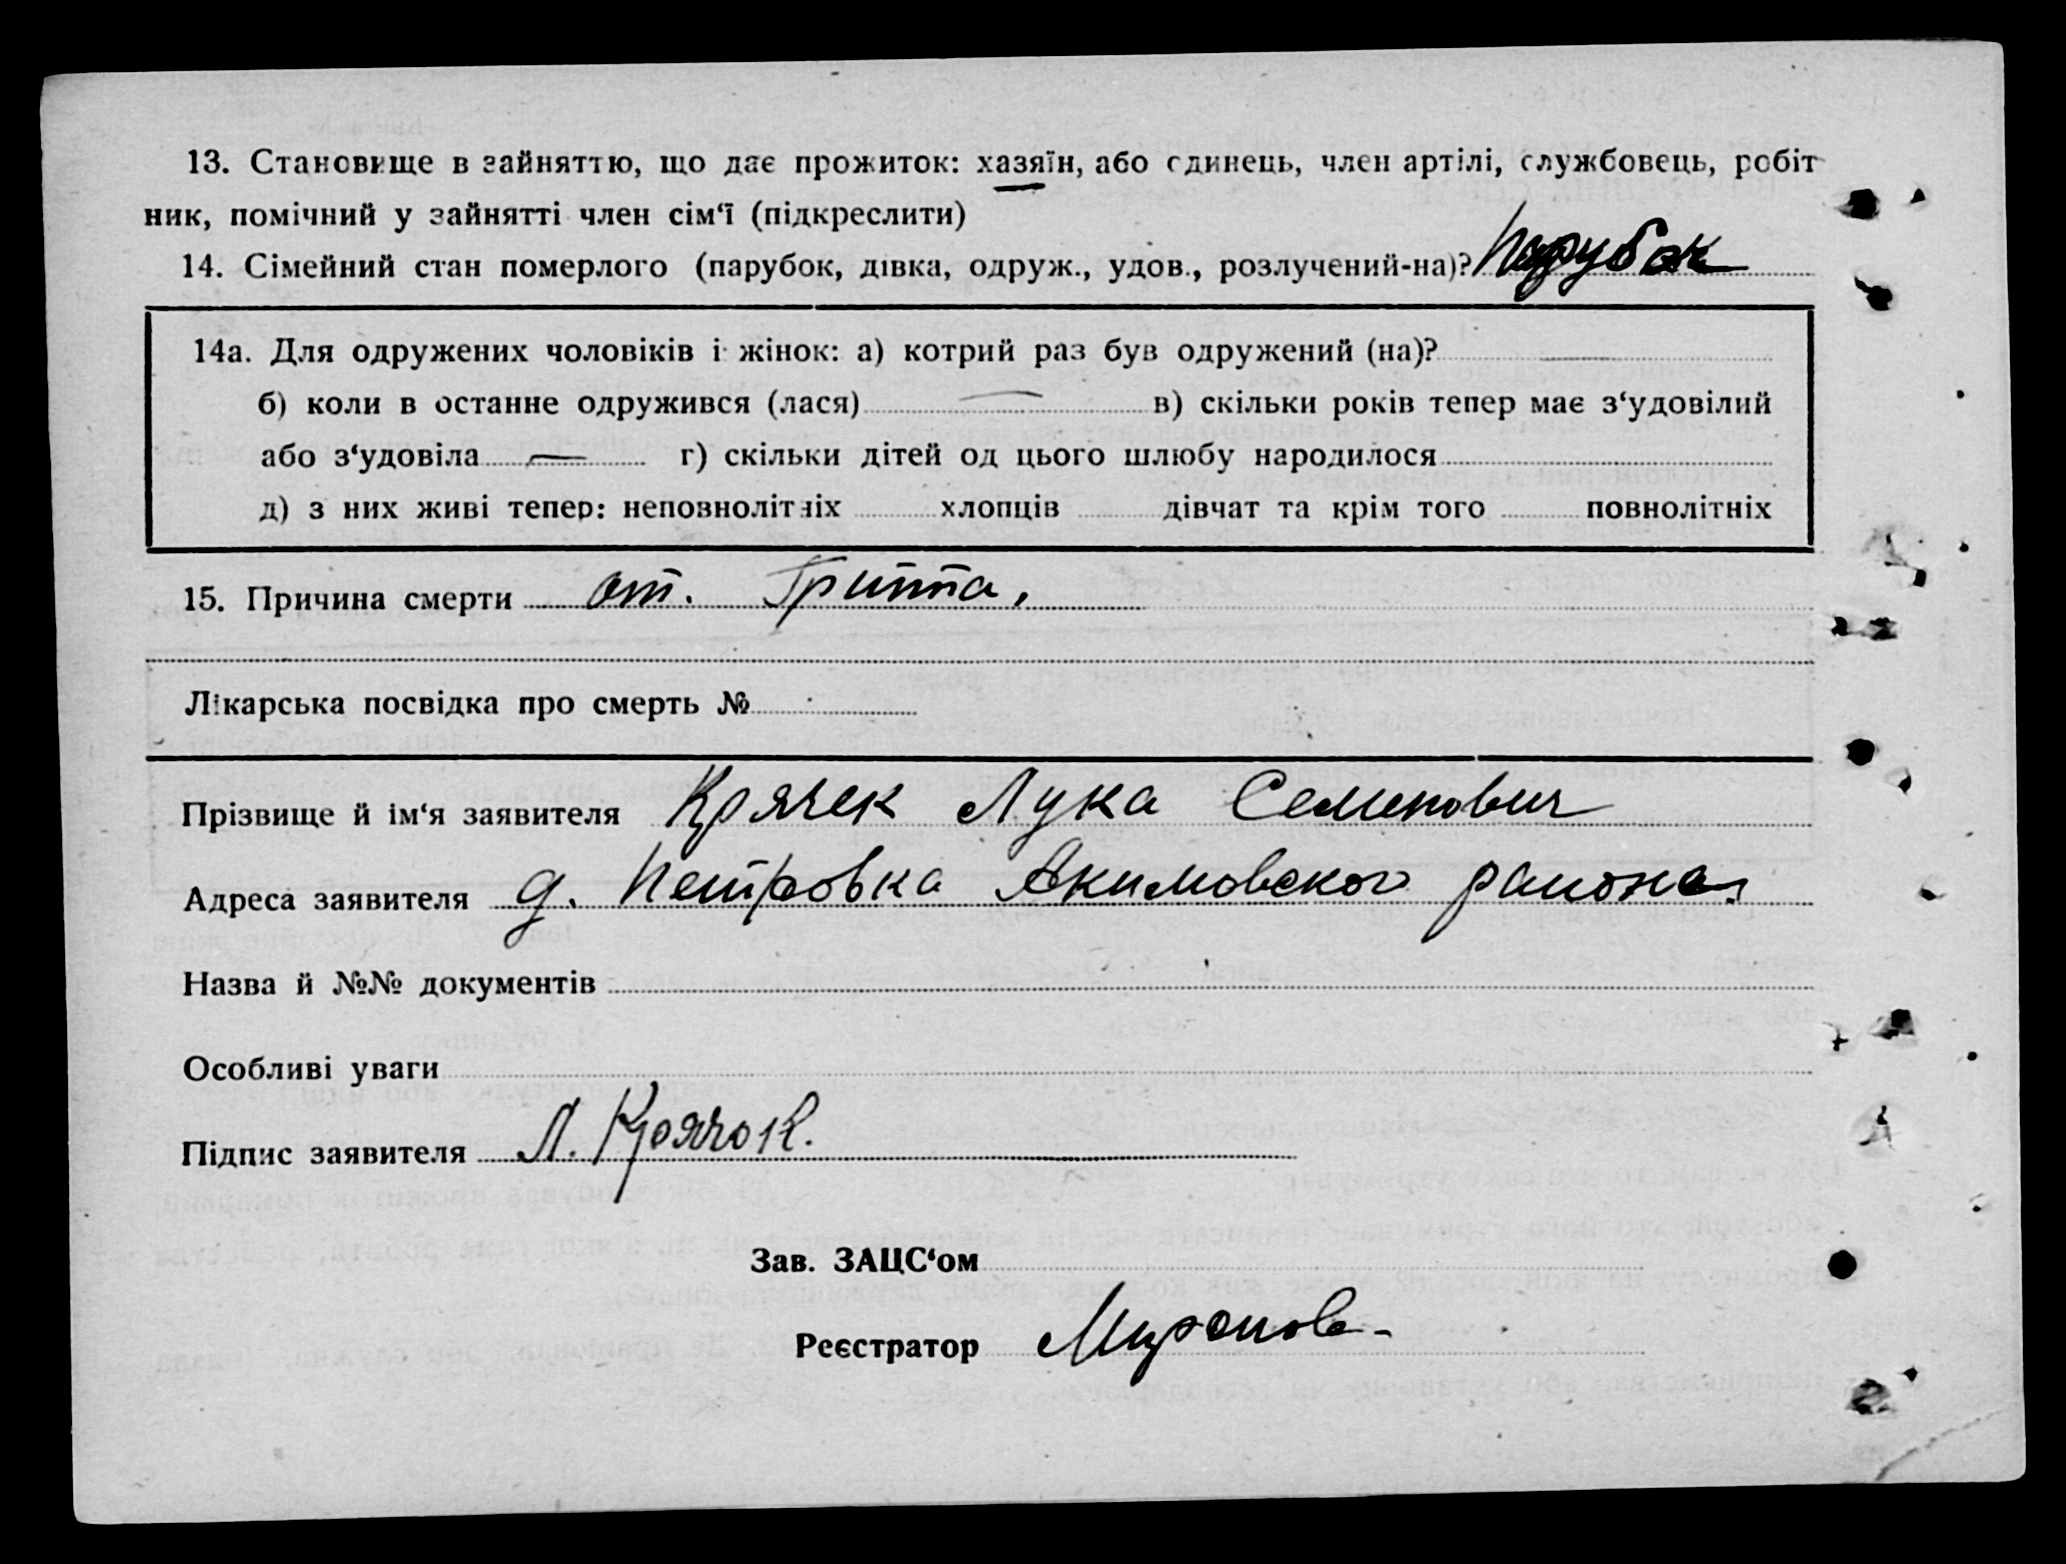 13. Становище в зайняттю, що дає прожиток: хазяїн, або єдинець, член артілі, службовець, робіт
ник, помічний у зайнятті член сім‘ї (підкреслити)
14. Сімейний стан померлого (парубок, дівка, одруж., удов., розлучений-на)? Парубок
14а. Для одружених чоловіків і жінок: а) котрий раз був одружений (на)? —
б) коли в останне одружився (лася) — в) скільки років тепер має з‘удовілий
або з‘удовіла — г) скільки дітей од цього шлюбу народилося
д) з них живі тепер: неповнолітніх хлопців дівчат та крім того повнолітніх
15. Причина смерти от. Гриппа.
Лікарська посвідка про смерть №
Прізвище й ім‘я заявителя Крячек Лука Семенович
Адреса заявителя д. Петровка Акимовского района
Назва й №№ документів
Особливі уваги
Підпис заявителя Л. Крячок.
Зав. ЗАЦС‘ом
Реєстратор Миронова